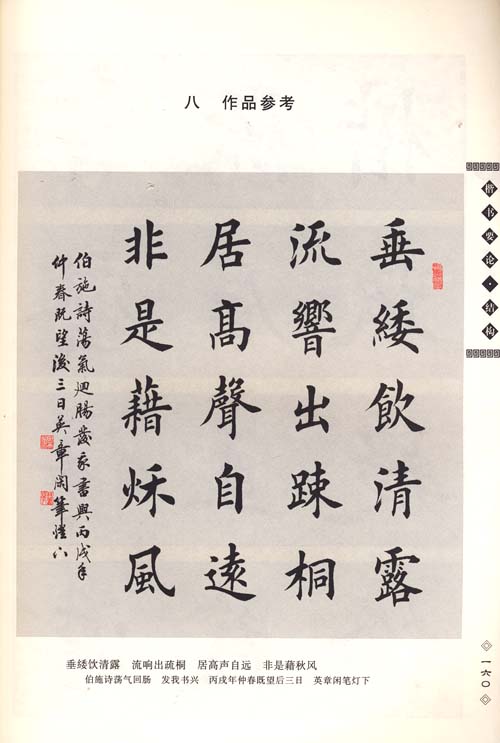 八 作品参考
垂緌飲清露
流響出踈桐
居髙聲自遠
非是藉秌風
伯施詩蕩氣迴腸發我書興丙戌年
仲春既望後三日英章閑筆燈下
垂緌饮清露 流响出疏桐 居高声自远 非是藉秋风
伯施诗荡气回肠 发我书兴 丙戌年仲春既望后三日 英章闲笔灯下
楷书要论·结构
一六〇